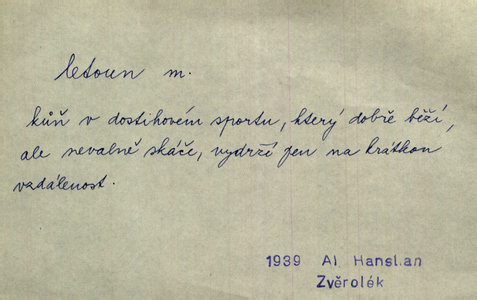 letoun m.
kůň v dostihovém sportu, který dobře běží,
ale nevalně skáče, vydrží jen na krátkou
vzdálenost.
1939 Al. Hanslian
Zvěrolék